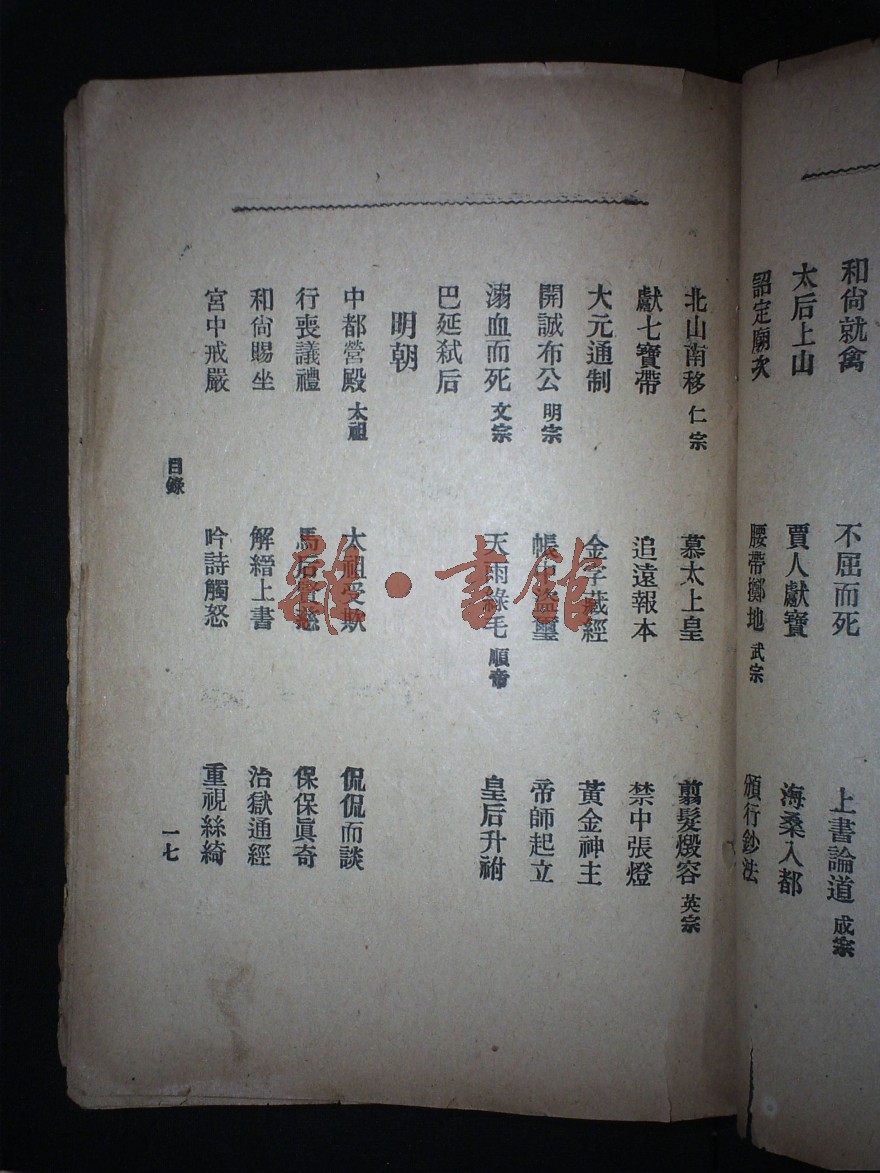 和尙就禽　不屈而死　上書論道 成宗
太后上山　賈人獻寶　海桑入都
詔定廟次　腰帶擲地 武宗　頒行鈔法
北山南移 仁宗　慕太上皇　翦髮燬容 英宗
獻七寶帶　追遠報本　禁中張燈
大元通制　金字藏經　黃金神主
開誠布公 明宗　帳中盜璽　帝師起立
溺血而死 文宗　天雨綠毛 順帝　皇后升祔
巴延弑后
明朝
中都營殿 太祖　太祖受欺　侃侃而談
行喪議禮　馬后慈　保保眞奇
和尙賜坐　解縉上書　治獄通經
宮中戒嚴　吟詩觸怒　重視絲綺
目錄　一七
雜·書館